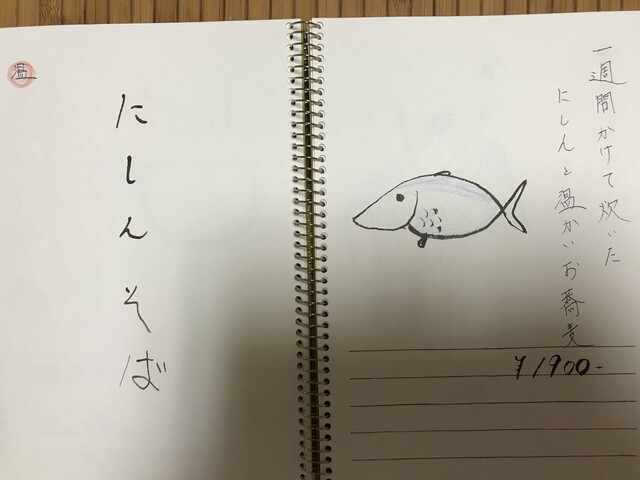 温
にしんそば
一週間かけて炊いた
にしんと温かいお蕎麦
¥1900-